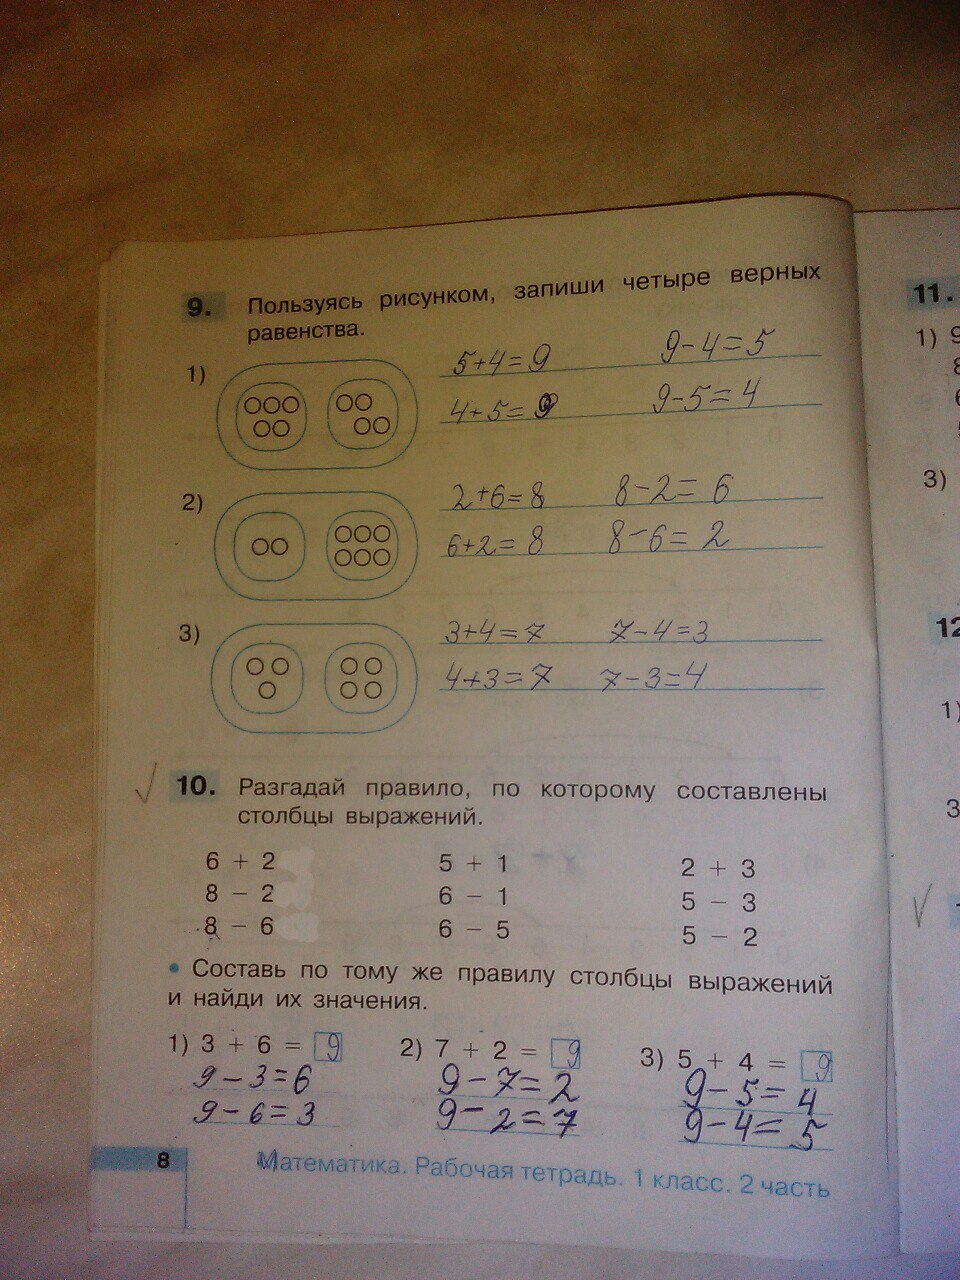 9. Пользуясь рисунком, запиши четыре верных
равенства.
1) 5+4=9 9-4=5
4+5=9 9-5=4
2) 2+6=8 8-2=6
6+2=8 8-6=2
3) 3+4=7 7-4=3
4+3=7 7-3=4
10. Разгадай правило, по которому составлены
столбцы выражений.
6 + 2 5 + 1 2 + 3
8 − 2 6 − 1 5 − 3
8 − 6 6 − 5 5 − 2
• Составь по тому же правилу столбцы выражений
и найди их значения.
1) 3 + 6 = 9 2) 7 + 2 = 9 3) 5 + 4 = 9
9-3=6 9-7=2 9-5=4
9-6=3 9-2=7 9-4=5
8 Математика. Рабочая тетрадь. 1 класс. 2 часть
11.
1) 9
8
6
3)
12
1)
3